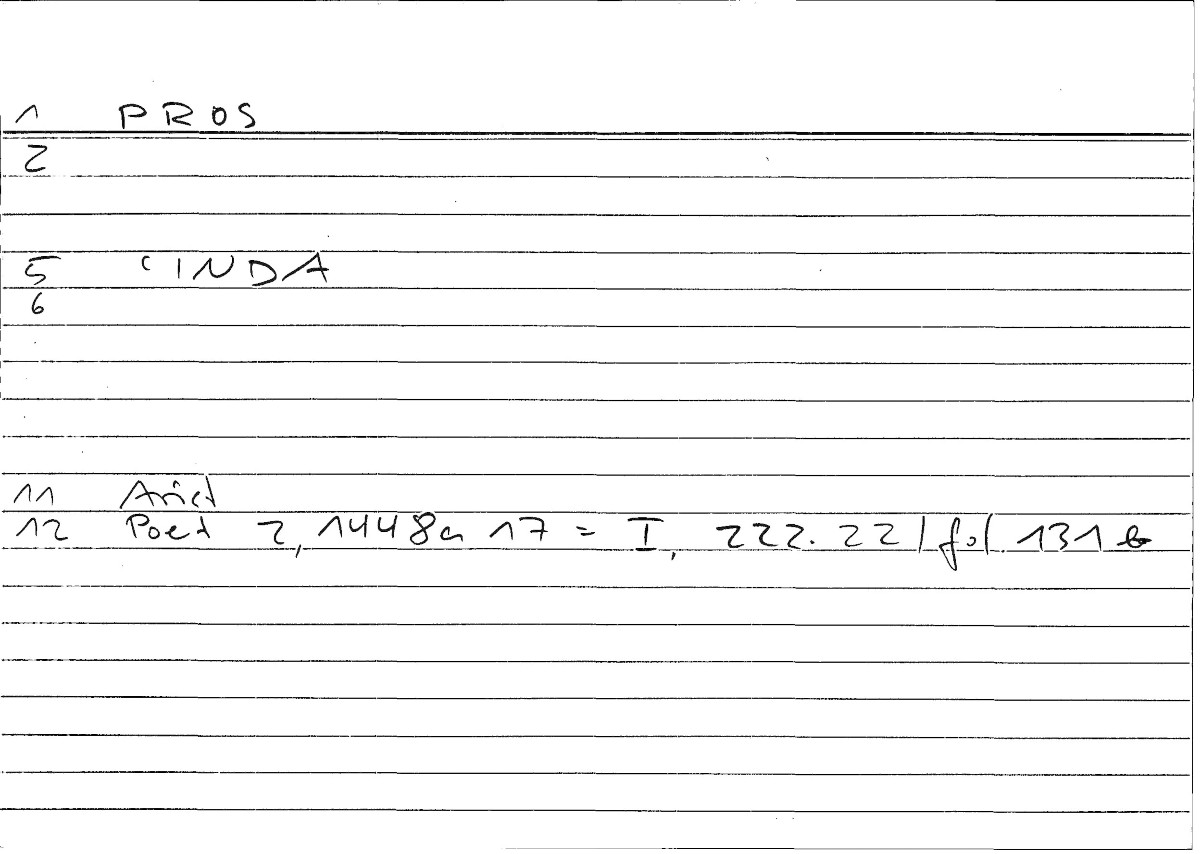 1 PROS
2
5 ʿINDA
6
11 Arist
12 Poet 2, 1448a 17 = I, 222.22 / fol 131b